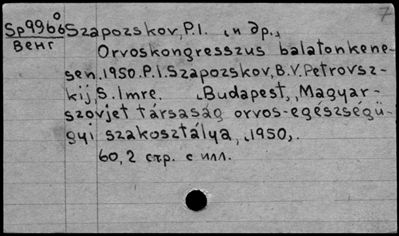 7
Sp9966° Szapozskov, P.I. и др.,
Венг
Orvoskongresszus balatonkene-
sen.1950.P.I.Szapozskov, B.V.Petrovsz-
kij, S. Imre. Budapest, Magyar-
szovjet társaság orvos-egészségü-
gyi szakosztálya, 1950,.
60,2 стр. с илл.